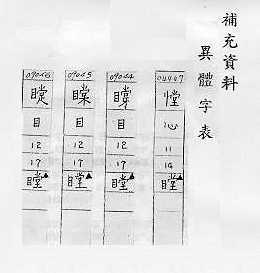 補充資料
異體字表
04447
憆
心
11
14
瞠▲
09044
目
12
17
瞠▲
09045
目
12
17
瞠▲
09046
目
12
17
瞠▲